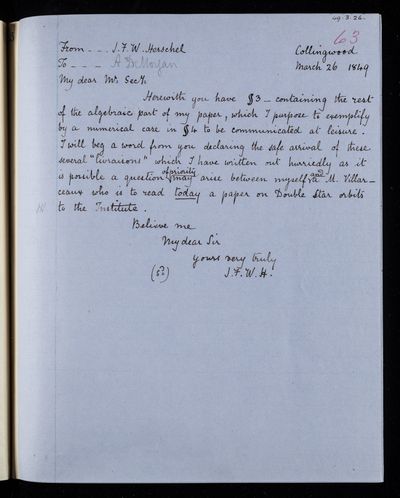 49.3.26.
63
From - - - J.F.W. Herschel
Collingwood
To - - - A DeMorgan
March 26 1849
My dear Mr. Secy.
Herewith you have §3 - containing the rest
of the algebraic part of my paper, which I purpose to exemplify
by a numerical case in §4 to be communicated at leisure.
I will beg a word from you declaring the safe arrival of these
several "livraisons" which I have written out hurriedly as it
is possible a question of priority may arise between myself and a M. Villar-
ceaux who is to read today a paper on Double Star orbits
to the Institute.
Believe me
My dear Sir
yours very truly
J.F.W.H.